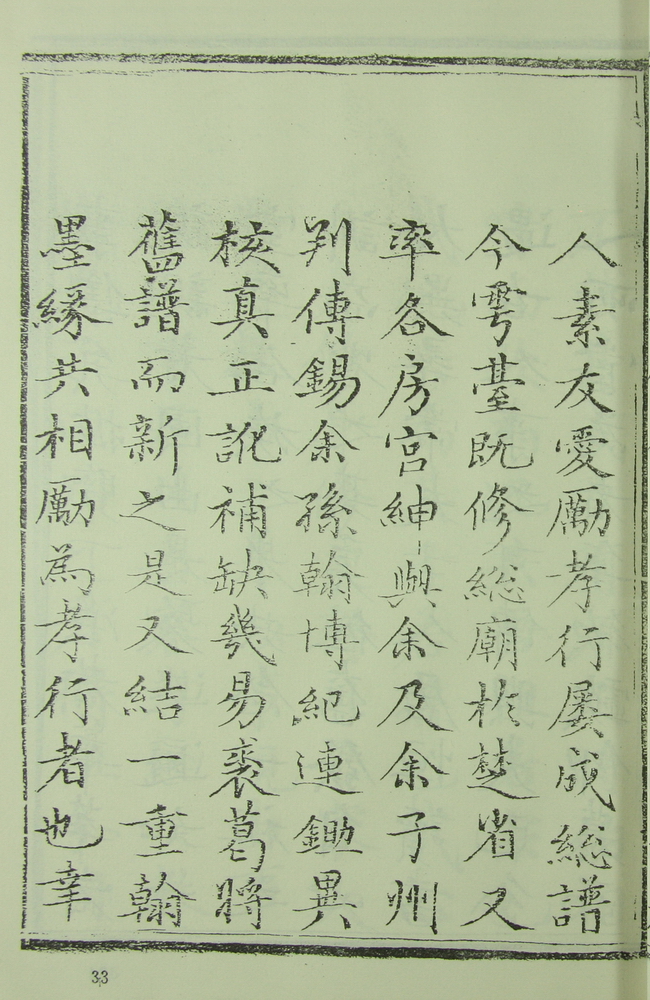 人素友愛勵孝行屡成総譜
今雩薹既修総廟於楚省又
率各房宫紳與余及余子州
判傳錫余孫翰博紀連鋤異
核真正訛補缺幾易裘葛將
舊譜而新之是又結一重翰
墨緣共相勵為孝行者也幸
33